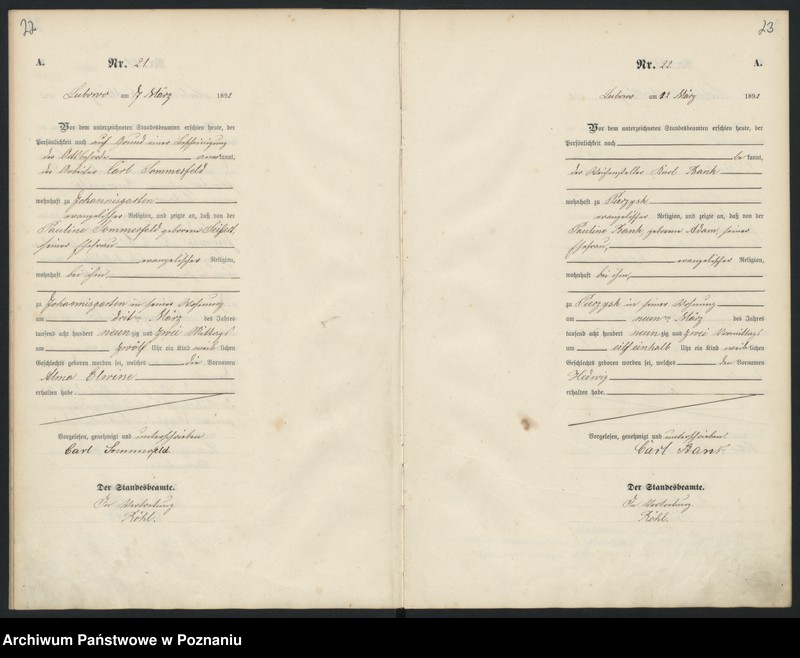 22
A. Nr. 21.
Lubowo am 7 März 1892
Vor dem unterzeichneten Standesbeamten erschien heute, der
Persönlichkeit nach auf Grund einer Bescheinigung
der Ortsbehörde anerkannt,
der Arbeiter Carl Sommerfeld
wohnhaft zu Johannisgarten
evangelischer Religion, und zeigte an, daß von der
Pauline Sommerfeld geborene Seifert
seiner Ehefrau
evangelischer Religion,
wohnhaft bei ihm,
zu Johannisgarten in seiner Wohnung
am dritten März des Jahres
tausend acht hundert neunzig und zwei Mittags
um zwölf Uhr ein Kind weiblichen
Geschlechts geboren worden sei, welches die Vornamen
Alma Elwine
erhalten habe.
Vorgelesen, genehmigt und unterschrieben
Carl Sommerfeld
Der Standesbeamte.
In Vertretung
Röhl.
23
Nr. 22 A.
Lubowo am 12 März 1892
Vor dem unterzeichneten Standesbeamten erschien heute, der
Persönlichkeit nach
be kannt,
der Weichensteller Karl Bank
wohnhaft zu Pierzysk
evangelischer Religion, und zeigte an, daß von der
Pauline Bank geborene Adam, seiner
Ehefrau,
evangelischer Religion,
wohnhaft bei ihm,
zu Pierzysk in seiner Wohnung
am neunten März des Jahres
tausend acht hundert neunzig und zwei Vormittags
um eilf einhalb Uhr ein Kind weiblichen
Geschlechts geboren worden sei, welches den Vornamen
Hedwig
erhalten habe.
Vorgelesen, genehmigt und unterschrieben
Carl Bank
Der Standesbeamte.
In Vertretung
Röhl.
Archiwum Państwowe w Poznaniu